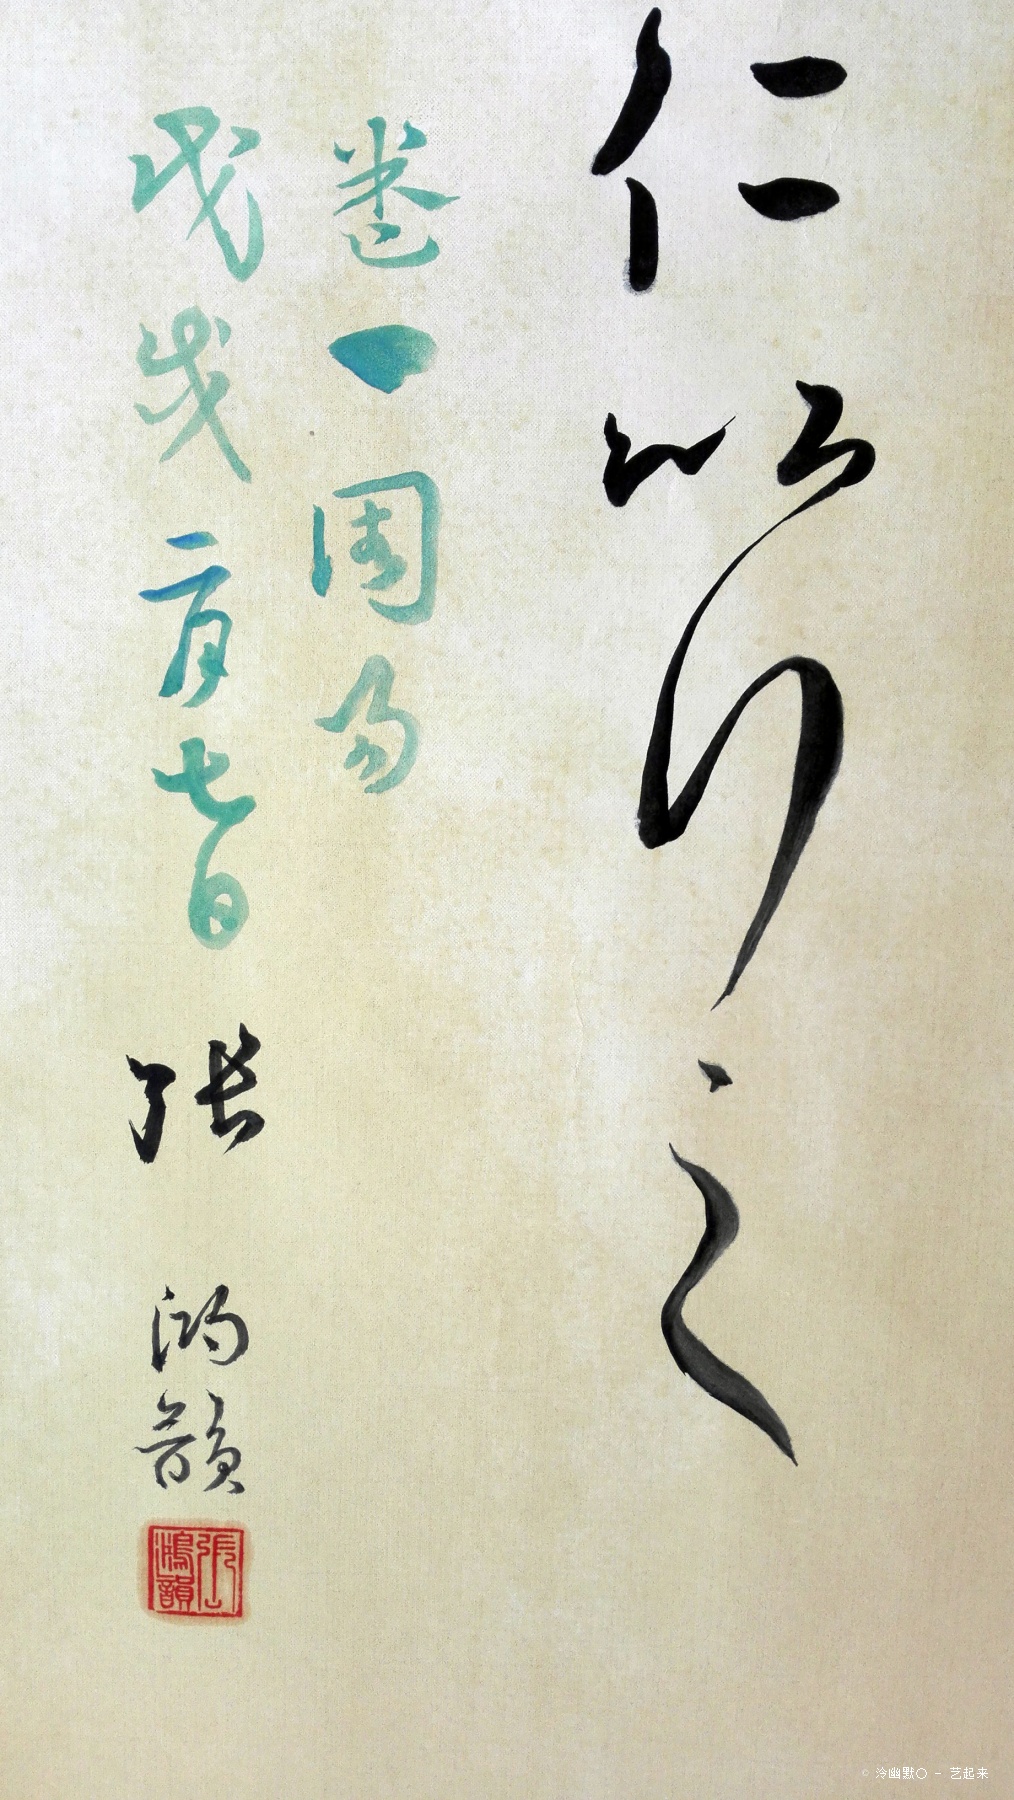 仁以行之
卷一周易
戊戌二月七日張鴻韻
張鴻韻
© 泠幽默〇 - 艺起来